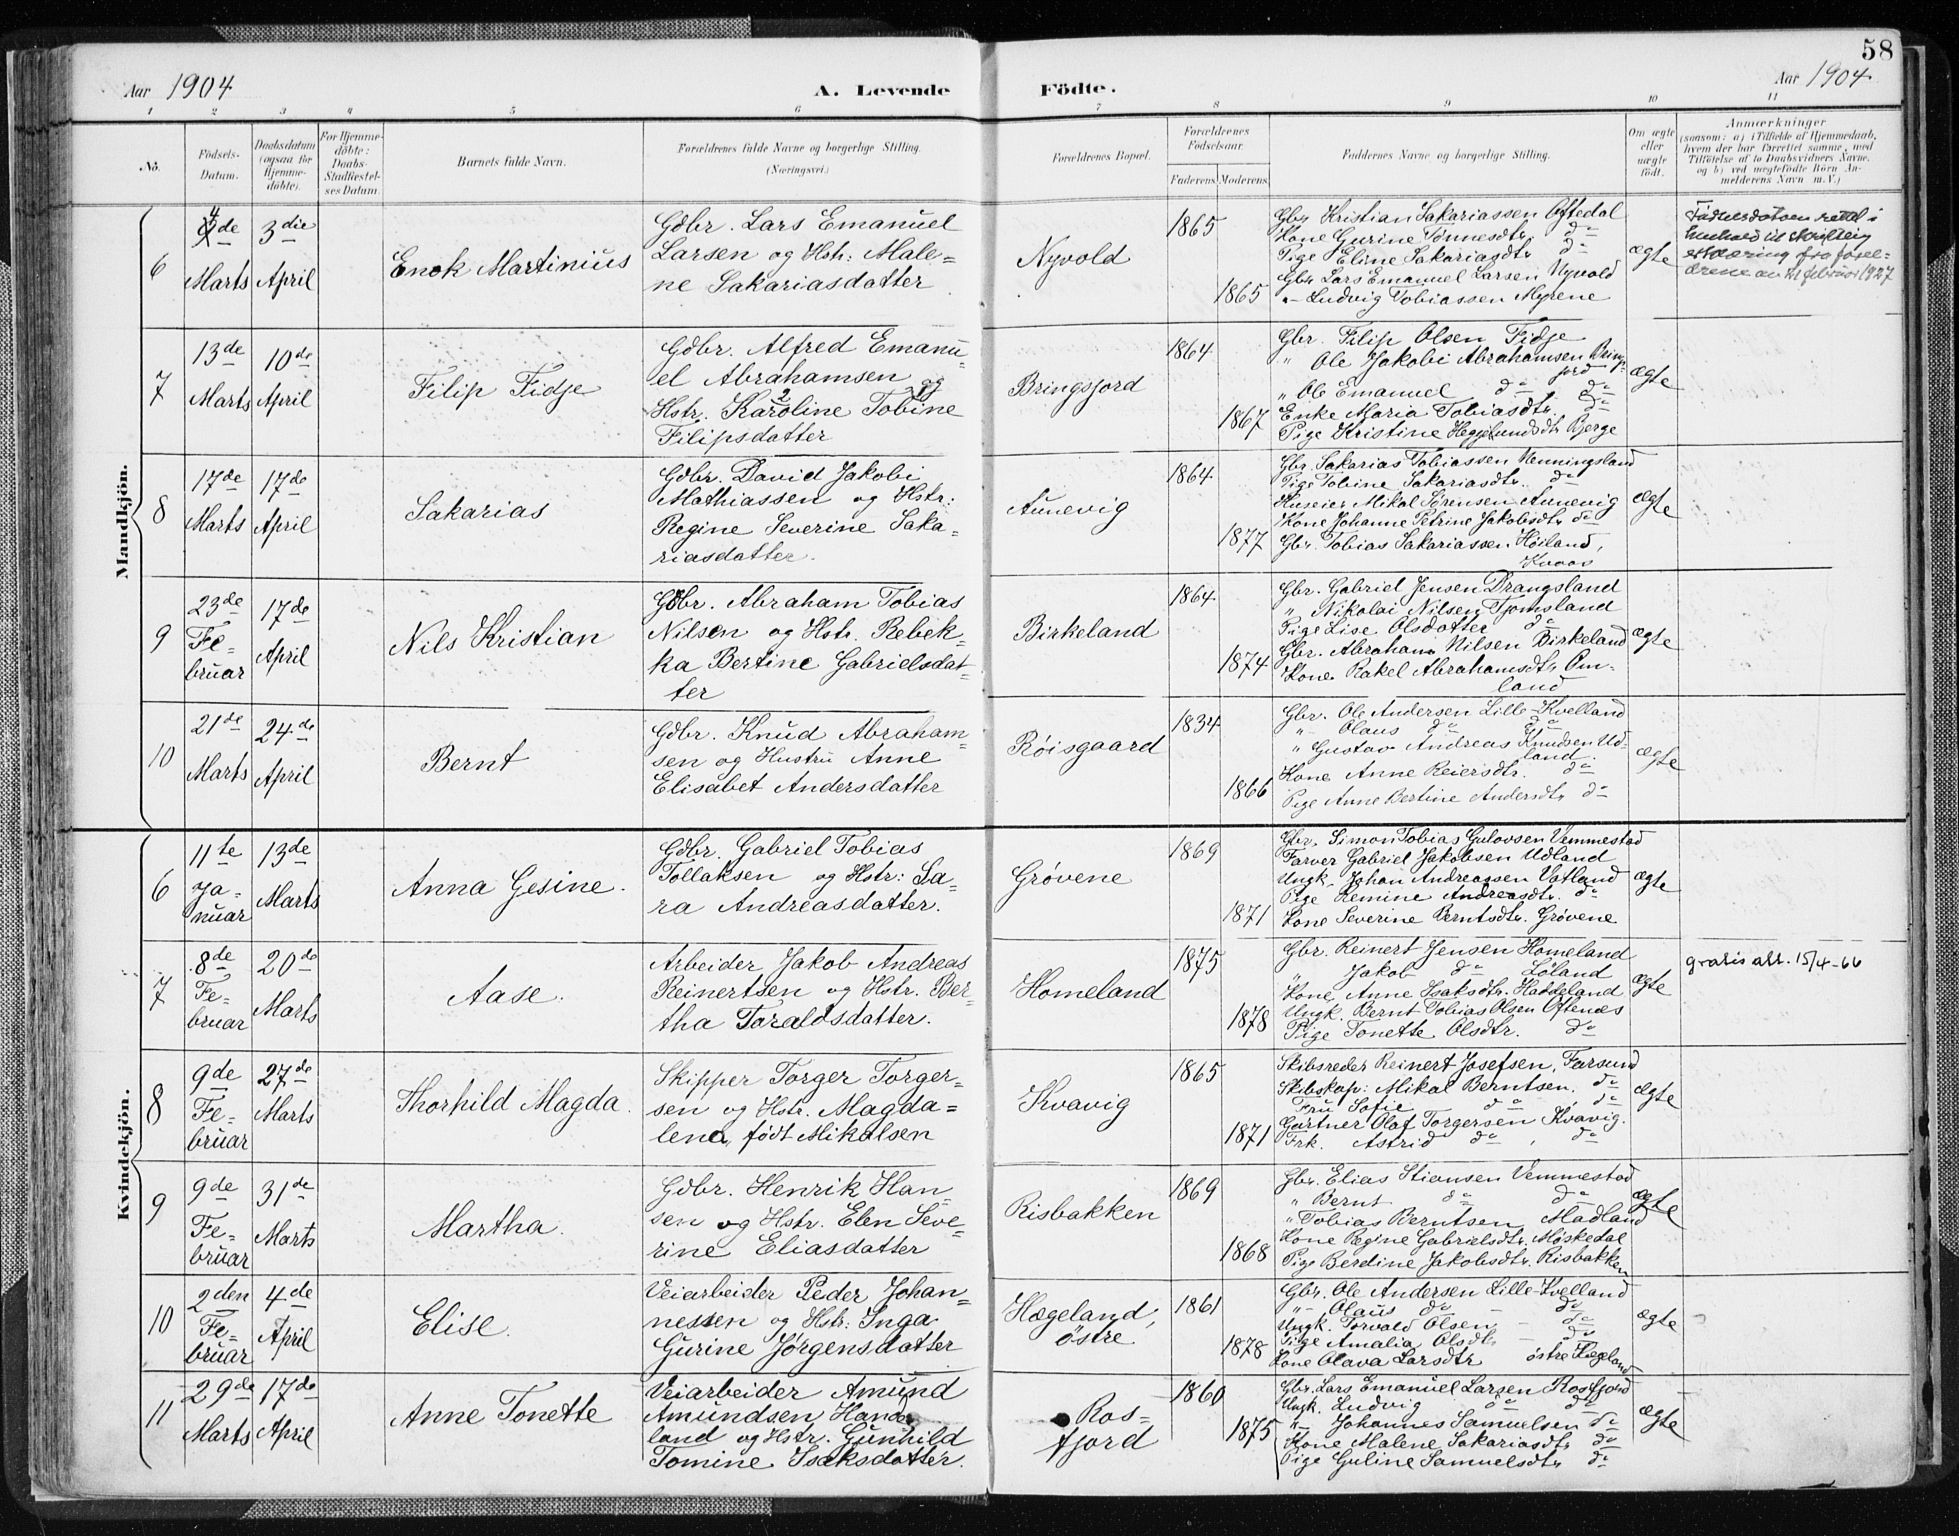 58
Aar 1904 A. Levende Födte. Aar 1904
1 2 3 4 5 6 7 8 9 10 11
No.
Födsels-
Datum.
Daabsdatum
(ogsaa for
Hjemme-
döbte).
For Hjemme-
döbte:
Daabs-
Stadfæstel-
ses Datum.
Barnets fulde Navn.
Forældrenes fulde Navne og borgerlige Stilling.
(Næringsvei.)
Forældrenes Bopæl.
Forældrenes
Fødselsaar.
Faderens Moderens
Faddernes Navne og borgerlige Stilling.
Om ægte
eller
uægte
födt.
Anmærkninger
(saasom: a) i Tilfælde af Hjemmedaab,
hvem der har forrettet samme, med
Tilföielse af to Daabsvidners Navne,
og b) ved uægtefödte Börn An-
melderens Navn m. V.)
Mandkjön.
6
4 de
Marts
3 die
April
Enok Martinius
Gdbr. Lars Emanuel
Larsen og Hstr: Male=
ne Sakariasdatter
Nyvold
1865
1865
Gbr Kristian Sakariassen Oftedal
Kone Gurine Tønnesdtr. do
Pige Eline Sakariasdtr do
Gbr Lars Emanuel Larsen Nyvold
"- Ludvig Tobiassen Myrene
ægte
Fødselsdatoen rettet i
henhold til skriftlig
erklæring fra forel-
drene av februar 1927
7
13de
Marts
10de
April
Filip Fidje
Gdbr. Alfred Emanu=
el Abrahamsen og
Hstr. Karoline Tobine
Filipsdatter
Bringsjord
1864
1867
Gbr. Filip Olsen Fidje
" Ole Jakobi Abrahamsen Brings-
jord
" Ole Emanuel do do
Enke Maria Tobiasdtr. do
Pige Kristine Bjerge
ægte
8
17de
Marts
17de
April
Sakarias
Gdbr. David Jakobi
Mathiassen og Hstr:
Regine Severine Saka-
riasdatter.
Aunevig
1864
1877
Gbr. Sakarias Tobiassen Henningsland
Pige Tobine Sakariasdtr. do
Huseier Mikal Sørensen Aunevig
Kone Johanne Petrine Jakobsdtr do
Gbr. Tobias Sakariassen Høiland,
Kvaas
ægte
9
23de
Fe-
bruar
17de
April
Nils Kristian
Gdbr. Abraham Tobias
Nilsen og Hstr. Rebek-
ka Bertine Gabrielsdat-
ter
Birkeland
1864
1874
Gbr. Gabriel Jensen Drangsland
" Nikolai Nilsen Tjomsland
Pige Lise Olsdotter do
Gbr. Abraham Nilsen Birkeland
Kone Rakel Abrahamsdtr Om-
land
ægte
10
21de
Marts
24de
April
Bernt
Gdbr. Knud Abraham=
sen og Hustru Anne
Elisabet Andersdatter
Røisgaard
1834
1866
Gbr. Ole Andersen Lille-Kvelland
"- Olaus do do
" Gustav Andreas Knudsen Ud-
land.
Kone Anne Reiersdtr. do
Pige Anne Bertine Andersdtr do
ægte
Kvindekjön.
6
11te
Ja-
nuar
13de
Marts
Anna Gesine.
Gdbr. Gabriel Tobias
Tollaksen og Hstr: Sa-
ra Andreasdatter.
Grøvene
1869
1871
Gbr. Simon Tobias Gulovsen Vemmestad
Farver Gabriel Jakobsen Udland
Ungk. Johan Andreassen Vatland
Pige Remine Andreasdtr. do
Kone Severine Berntsdtr. Grøvene
ægte
7
8de
Fe-
bruar
20de
Marts
Aase.
Arbeider Jakob Andreas
Reinertsen og Hstr. Ber-
tha Taraldsdatter.
Homeland
1875
1878
Gbr. Reinert Jensen Homeland
" Jakob do Løland
Kone Anne Isaksdtr. Haddeland
Ungk. Bernt Tobias Olsen Oftenæs
Pige Tonette Olsdtr. do
ægte
gratis att. 15/4-66
8
9de
Fe-
bruar
27de
Marts
Thorhild Magda.
Skipper Torger Torger-
sen og Hstr. Magda=
lena, født Mikalsen
Kvavig
1865
1871
Skibsreder Reinert Josefsen, Farsund
Skibskap: Mikal Berntsen, do
Fru Sofie do , do
Gartner Olaf Torgersen Kvavig.
Frk. Astrid do , do
ægte
9
9de
Fe-
bruar
31de
Marts
Martha.
Gdbr. Henrik Han-
sen og Hstr. Elen Seve-
rine Eliasdatter
Risbakken
1869
1868
Gbr. Elias Stiansen Vemmestad
" Bernt do do
" Tobias Berntsen Madland
Kone Regine Gabrielsdtr. Møskedal
Pige Berdine Jakobsdtr. Risbakken
ægte
10
2den
Fe-
bruar
4de
April
Elise.
Veiarbeider Peder Johan=
nessen og Hstr: Inga
Gurine Jørgensdatter
Hægeland,
østre
1861
1878
Gbr. Ole Andersen Lille-Kvelland
"- Olaus do - do
Ungk. Torvald Olsen - do
Pige Amalia Olsdtr - do
Kone Olava Larsdtr østre Hægeland
ægte
11
29de
Marts
17de
April
Anne Tonette
Veiarbeider Amund
Amundsen
land og Hstr. Gunhild
Tomine Isaksdatter.
Ros-
fjord
1860
1875
Gbr. Lars Emanuel Larsen Rosfjord
Ungk. Ludvig do do
"- Johannes Samuelsen do
Kone Malene Sakariasdtr do
Pige Guline Samuelsdtr do
ægte